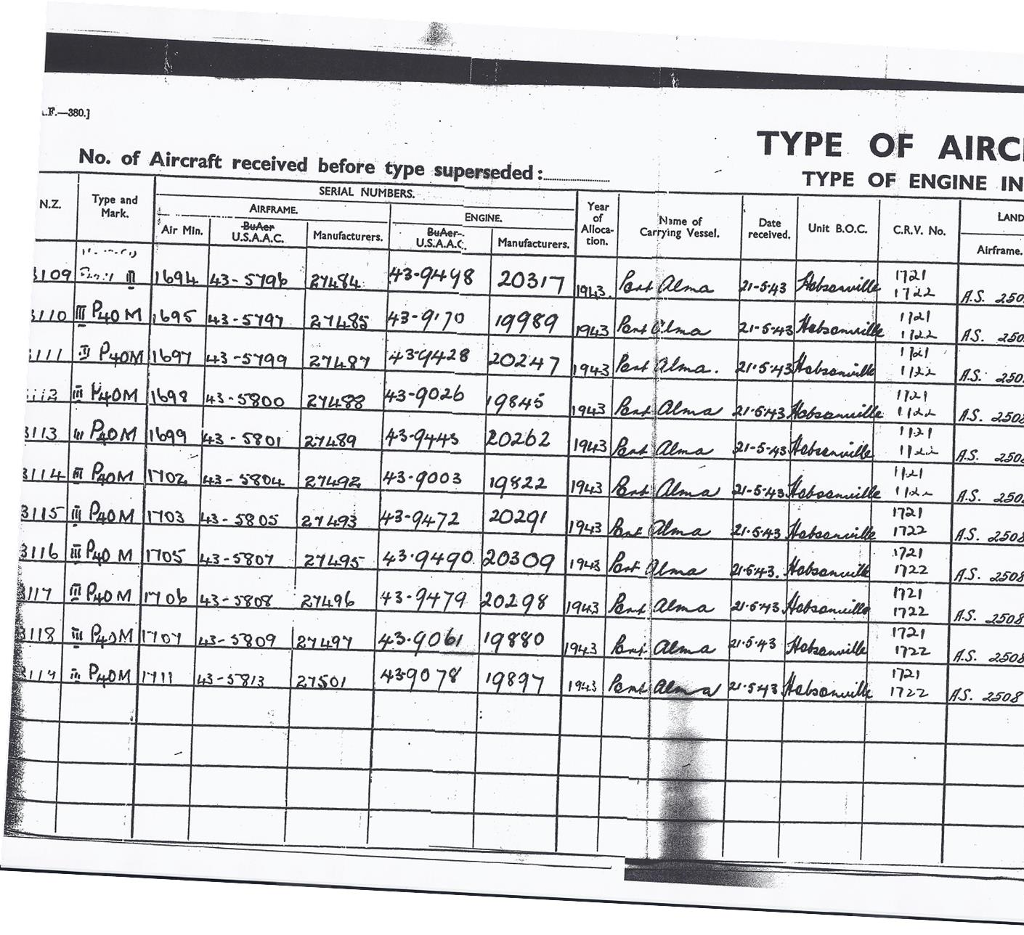 .F.—380.]
TYPE OF AIRC
No. of Aircraft received before type superseded:
TYPE OF ENGINE IN
N.Z.
Type and Mark.
SERIAL NUMBERS.
AIRFRAME.
ENGINE.
Air Min.
BuAer
U.S.A.A.C.
Manufacturers.
BuAer
U.S.A.A.C.
Manufacturers.
Year of Alloca-tion.
Name of Carrying Vessel.
Date received.
Unit B.O.C.
C.R.V. No.
LAND
Airframe.
3109 III 1694 43-5796 27484 43-9498 20317 1943 Port Alma 21-5-43 Hobsonville 1721 1722 A.S. 250
3110 III P40M 1695 43-5797 27485 43-9170 19989 1943 Port Alma 21-5-43 Hobsonville 1721 1722 A.S. 250
3111 III P40M 1697 43-5799 27487 43-9428 20247 1943 Port Alma. 21-5-43 Hobsonville 1721 1722 A.S. 250
3112 III P40M 1698 43-5800 27488 43-9026 19845 1943 Port Alma 21-5-43 Hobsonville 1721 1722 A.S. 250
3113 III P40M 1699 43-5801 27489 43-9443 20262 1943 Port Alma 21-5-43 Hobsonville 1721 1722 A.S. 2508
3114 III P40M 1702 43-5804 27492 43-9003 19822 1943 Port Alma 21-5-43 Hobsonville 1721 1722 A.S. 250
3115 III P40M 1703 43-5805 27493 43-9472 20291 1943 Port Alma 21-5-43 Hobsonville 1721 1722 A.S. 2508
3116 III P40M 1705 43-5807 27495 43-9490 20309 1943 Port Alma 21-5-43. Hobsonville 1721 1722 A.S. 2508
3117 III P40M 1706 43-5808 27496 43-9479 20298 1943 Port Alma 21-5-43 Hobsonville 1721 1722 A.S. 2508
3118 III P40M 1707 43-5809 27497 43-9061 19880 1943 Port Alma 21-5-43 Hobsonville 1721 1722 A.S. 2508
3119 III P40M 1711 43-5813 27501 43-9078 19897 1943 Port Alma 21-5-43 Hobsonville 1721 1722 A.S. 2508